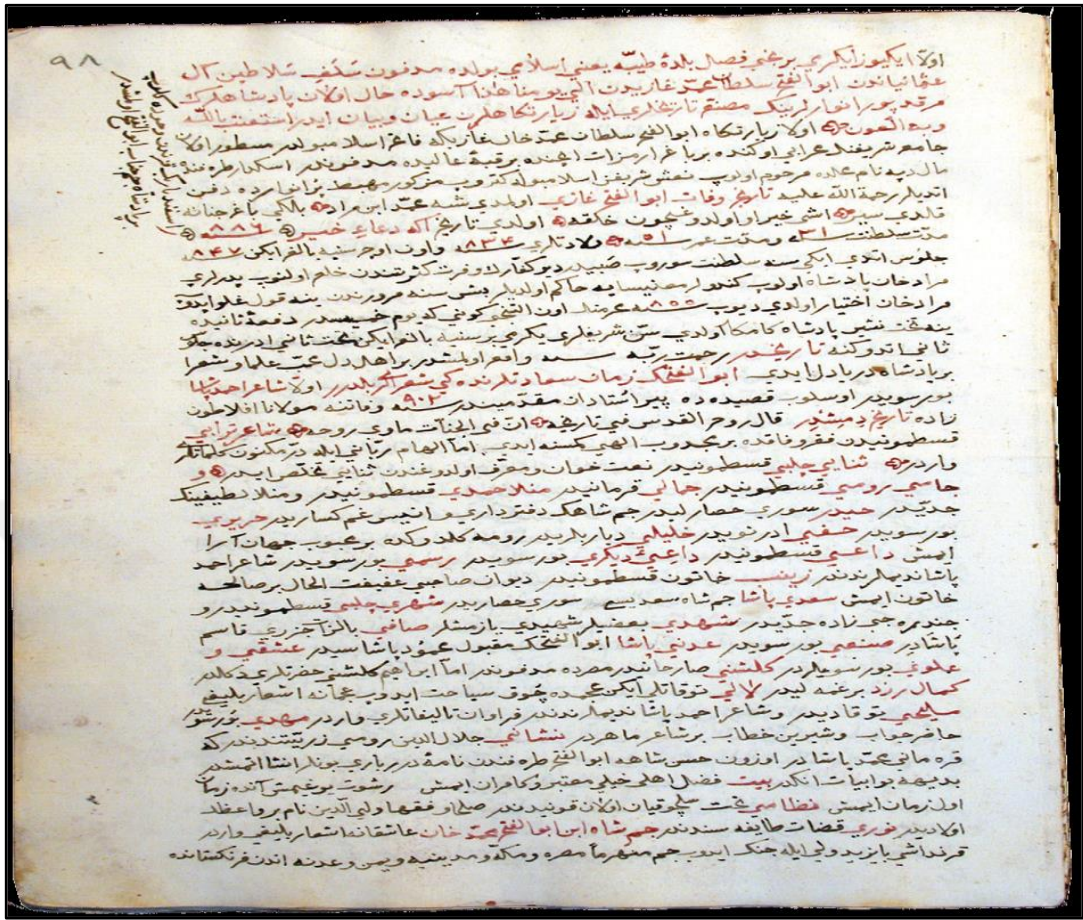 ٩٨
اولا ايكيوز ايكرمي برنجي فصل بلدهٔ طيبه يعني اسلامبولده مدفون سلف سلاطين آل
عثمانيانون ابو الفتح سلطان محمد غازيدن الي يومنا هذا آسوده حال اولان پادشاهلرك
مرقد پور انوارلرينك تاريخلري ايله زيارتكاهلرن عيان وبيان ايدر استعنت بالله
وبه العون اولا زيارتكاه ابو الفتح سلطان محمد خان غازيكه فاتح اسلامبولدر مسطور اولان
جامع شريفنك محرابي اوكنده بر باغ ارم ذات ايچنده بر قبهٔ عاليده مدفوندر اسكدار طرفنده
مال دپه نام محلده مرحوم اولوب نعش شريفن اسلامبوله كتروب مذكور مهبط پر انوارده دفن
ايتديلر رحمة الله عليه تاريخ وفات ابو الفتح غازي اولمدي شبه محمد ابن مراد
اولدي تاريخ اكه دعاء خير ٨٨٦ سنه
مدت سلطنت ٣١ سنه ومدت عمر ٥١ سنه ولادتلري ٨٣٤ سنه واون اوچ سنه بالغ ايكن ٨٤٧ سنه
جلوس اتدي ايكي سنه سلطنت سوروب صبيدر ديو كفار
مراد خان پادشاه اولوب كندولر مغنيسايه حاكم اولديلر بش سنه مرورندن ينه
مراد خان اختيار اولدي ديوب ٨٥٥ سنه محرمنك اون التنجي كوني
ينه تخت نشين پادشاه كامكار اولدي سن شريفلري يكرمي بر سنه يه بالغ ايكن تخت ثاني ادرنه ده جلوس
ثاني اتدوكنه تاريخدر رحمت رتبه سنه واقع اولمشدر بر اهل دل محب علما وشعرا
بر پادشاه دريا دل ايدي ابو الفتحك زمان سعادتلرنده كي شعرالريدر اولا شاعر احمد پاشا
بورسويدر اوسلوب قصيده ده پير استادان مقدميندر سنه ٩٠٢ وفاتنه مولانا افلاطون
زاده تاريخ دمشدر قال روح القدس في تاريخه ان في الجنات ماوي روحه شاعر ترابي
قسطمونيدن فقر وفاقده بر مجذوب الهي كمسنه ايدي اما الهام رباني ايله در مكنون كلماتلر
واردر ثنايي چلبي قسطمونيدر نعت خوان ومعرف اولدوغندن ثنايي تخلص ايدر و
جامي رومي قسطمونيدر جمالي قرمانيدر منلا حمدي قسطمونيدر ومنلا لطيفينك
جديدر حيدر سوري حصارليدر جم شاهك دفترداري وانيس غمكساريدر حريري
بورسويدر حفي ادرنويدر خليلي دياربكريدر رومه كلدوكده بر محبوب جهان آرا
ايمش داعي قسطمونيدر داعئ ديكري بورسويدر رسمي بورسويدر شاعر احمد
پاشا نديملرندندر زينب خاتون قسطمونيدر ديوان صاحبي عفيفت الحال بر صالحه
خاتون ايمش سعدي پاشا جم شاه سعديسي سوري حصاريدر شهري چلبي قسطمونيدر و
جندره جي زاده جديدر شهدي بعضيلر شهيدي يازمشلر صافي بالذات جزري قاسم
پاشادر صنعي بورسويدر عدني پاشا ابو الفتحك مقبول محمود پاشاسيدر عشقي و
علوي بورسويلردر كلشني صارحانيدر مصرده مدفوندر اما ابراهيم كلشني حضرتلري دكلدر
كمال زرد برغمه ليدر لالي توقاتلي ايكن عجمده چوق سياحت ايدوب عجمانه اشعار بليغي
مليحي توقاديدر وشاعر احمد پاشا نديملرندندر فراوان تاليفاتلري واردر مهدي بورسويدر
حاضر جواب وشيرين خطاب بر شاعر ماهردر نشاني جلال الدين رومي ذريتندندر كه
قره ماني محمد پاشادر اوزون حسن شاهه ابو الفتح طرفندن نامهٔ درر باري بونلر انشا اتمشدر
بديهه بو ابيات انكدر بيت فضل اهلي خيلي معتبر وكامران ايمش رشوت يوغيمش آنده زمان
اول زمان ايمش نظامي تحت سلچوقيان اولان قونيدندر صلحا وفقها ولي الدين نام بر واعظك
اولاديدر نوري قضات طايفه سندندر جم شاه ابن ابو الفتح محمد خان عاشقانه اشعار بليغي واردر
قرنداشي بايزيد ولي ايله جنك ايدوب جم منهزماً مصره ومكه ومدينه يه ويمن وعدنه اندن فرنكستانده